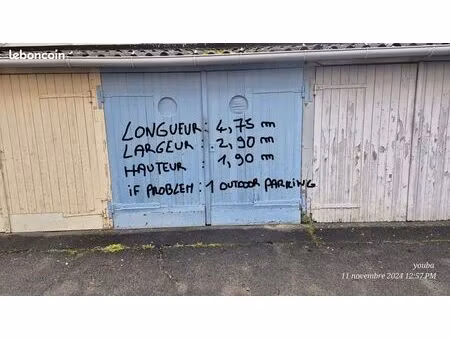 leboncoin
LONGUEUR: 4,75 m
LARGEUR : 2,90 m
HAUTEUR : 1,90 m
iF PROBLEM : 1 OUTDOOR PARKING
youba
11 novembre 2024 12:57 PM